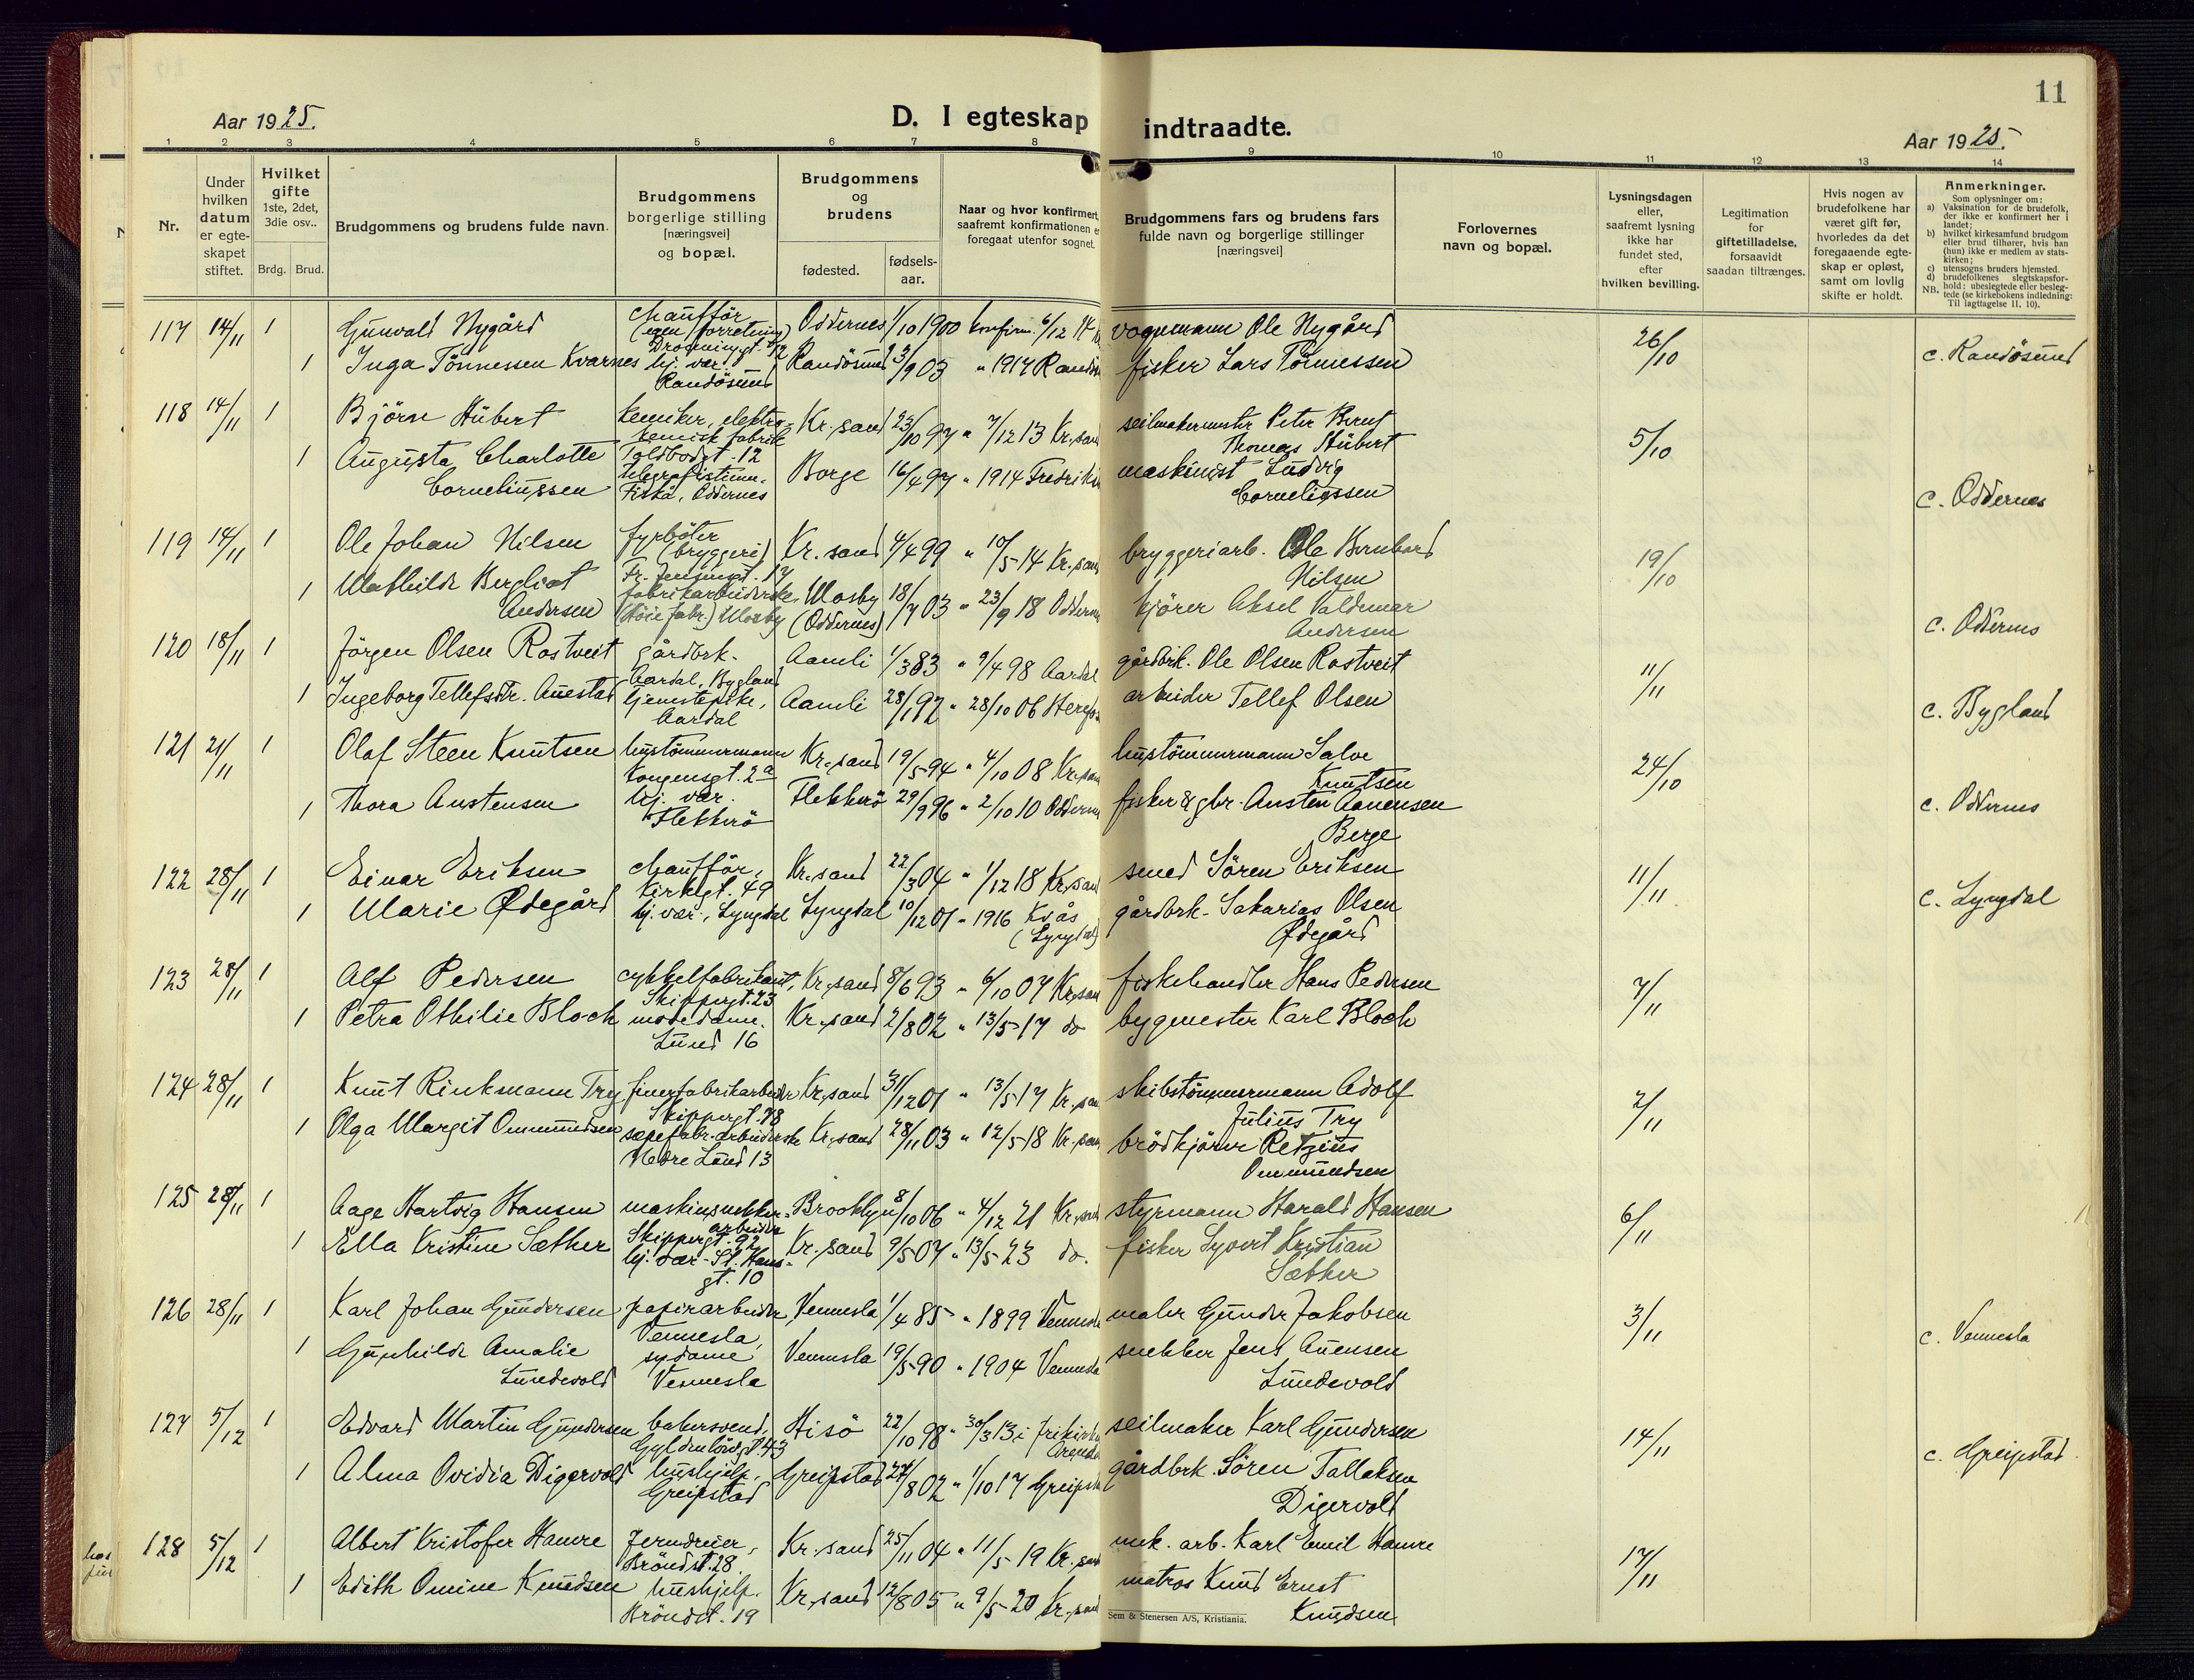 11
Aar 1925.
D. I egteskap indtraadte.
Aar 1925.
1 2 3 4 5 6 7 8 9 10 11 12 13 14
Nr.
Under hvilken datum er egte-skapet stiftet.
Hvilket gifte 1ste, 2det, 3die osv..
Brdg. Brud.
Brudgommens og brudens fulde navn.
Brudgommens borgerlige stilling [næringsvei] og bopæl.
Brudgommens og brudens
fødested.
fødsels-aar.
Naar og hvor konfirmert, saafremt konfirmationen er foregaat utenfor sognet.
Brudgommens fars og brudens fars fulde navn og borgerlige stillinger [næringsvei]
Forlovernes navn og bopæl.
Lysningsdagen eller, saafremt lysning ikke har fundet sted, efter hvilken bevilling.
Legitimation for giftetilladelse, forsaavidt saadan tiltrænges.
Hvis nogen av brudefolkene har været gift før, hvorledes da det foregaaende egte-skap er opløst, samt om lovlig skifte er holdt.
Anmerkninger.
Som oplysninger om:
a) Vaksination for de brudefolk, der ikke er konfirmert her i landet;
b) hvilket kirkesamfund brudgom eller brud tilhører, hvis han (hun) ikke er medlem av stats-kirken;
c) utensogns bruders hjemsted.
d) brudefolkenes slegtskapsfor-hold: ubeslegtede eller besleg-tede (se kirkebokens indledning:
NB. Til Iagttagelse II, 10).
117 14/11 1 Gunvald Nygård chaufför (egen forretning) Dronningt. 72 Oddernes 1/10 1900 konfirm. 6/12 14 vognmann Ole Nygård 26/10
1 Inga Tönnessen Kvarnes hj. vær. Randösund Randösund 3/9 03 " 1917 fisker Lars Tönnessen c. Randösund
118 14/11 1 Björn Hübert kemiker, elektro-kemisk fabrik Toldbodgt. 12 Kr.sand 23/10 97 " 7/12 13 Kr.sand seilmakermester Peter Bernt Thomas Hübert 5/10
1 Augusta Charlotte Corneliussen telegrafistinne. Fiskå, Oddernes Borge 16/4 97 " 1914 maskinist Ludvig Corneliussen c. Oddernes
119 14/11 1 Ole Johan Nilsen fyrböter (bryggeri) Fr. Jensensgt. 17 Kr.sand 4/4 99 " 10/5 14 Kr.sand bryggeriarb. Ole Bernhard Nilsen 19/10
1 Mathilde Bergliot Andersen fabrikarbeiderske, (Höie fabr.) Mosby Mosby (Oddernes) 18/7 03 " 23/9 18 Oddernes kjörer Aksel Valdemar Andersen c. Oddernes
120 18/11 1 Jörgen Olsen Rostveit gårdbrk. Aardal, Bygland Aamli 1/3 83 " 9/4 98 Aardal gårdbrk. Ole Olsen Rostveit 11/11
1 Ingeborg Tellefsdtr. Auestad tjenstepike, Aardal Aamli 28/1 92 " 28/10 06 arbeider Tellef Olsen c. Bygland
121 21/11 1 Olaf Steen Knutsen hustömmermann Kongensgt. 2a Kr.sand 19/5 94 " 4/10 08 Kr.sand hustömmermann Salve Knutsen 24/10
1 Thora Austensen hj. vær. Flekkerö Flekkerö 29/9 96 " 2/10 10 Oddernes fisker & gbr. Austen Aanensen Berge c. Oddernes
122 28/11 1 Einar Eriksen chaufför, Kirkegt. 49 Kr.sand 22/3 04 " 1/12 18 Kr.sand smed Sören Eriksen 11/11
1 Marie Ødegård hj. vær., Lyngdal Lyngdal 10/12 01 " 1916 Kvås (Lyngdal) gårdbrk. Sakarias Olsen Ødegård c. Lyngdal
123 28/11 1 Alf Pedersen cykkelfabrikant, Skippergt. 23 Kr.sand 8/6 93 " 6/10 07 Kr.sand fiskehandler Hans Pedersen 7/11
1 Petra Othilie Bloch modedame. Lund 16 Kr.sand 2/8 02 " 13/5 17 do bygmester Karl Bloch
124 28/11 1 Knut Rinkmann Try finerfabrikarbeider Skippergt. 78 Kr.sand 31/12 01 " 13/5 17 Kr.sand skibstömmermann Adolf Julius Try 2/11
1 Olga Margit Ommundsen sæpefabr.arbeiderske Nedre Lund 13 Kr.sand 28/11 03 " 12/5 18 Kr.sand brödkjörer Retzius Ommundsen
125 28/11 1 Aage Hartvig Hansen maskinsnekker-arbeider Skippergt. 92 Brooklyn 8/10 06 " 4/12 21 Kr.sand styrmann Harald Hansen 6/11
1 Ella Kristine Sæther hj. vær. St. Hans-gt. 10 Kr.sand 9/5 07 " 13/5 23 do. fisker Syvert Kristian Sæther
126 28/11 1 Karl Johan Gundersen papirarbeider, Vennesla Vennesla 1/4 85 " 1899 Vennesla maler Gunder Jakobsen 3/11
1 Gunhilde Amalie Lundevold sydame Vennesla Vennesla 19/5 90 " 1904 Vennesla snekker Jens Auensen Lundevold c. Vennesla
127 5/12 1 Edvard Martin Gundersen bakersvend, Gyldenlövsgt. 43 Hisö 22/10 98 " 30/3 13 i frikirke Arendal seilmaker Karl Gundersen 14/11
1 Alma Ovidia Digervold hushjelp, Greipstad Greipstad 27/8 02 " 1/10 17 Greipstad gårdbrk. Sören Tallaksen Digervold c. Greipstad
128 5/12 1 Albert Kristofer Hamre Jerndreier, Bröndst. 28. Kr.sand 25/11 04 " 11/5 19 Kr.sand mek. arb. Karl Emil Hamre 17/11
1 Edith Omine Knudsen hushjelp. Bröndst. 19 Kr.sand 12/8 05 " 9/5 20 Kr.sand matros Knud Ernst Knudsen
Sem & Stenersen A/S, Kristiania.